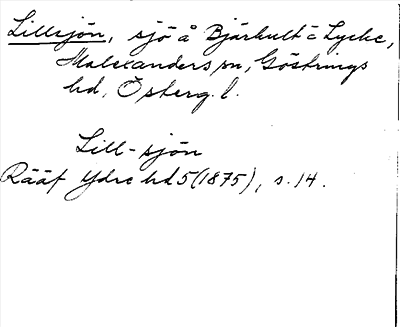 Lillsjön, sjö å Bjärhult = Lycke,
Malexanders sn, Göstrings
hd, Österg. l.
Lill-sjön
Rääf Ydre hd 5 (1875), s. 14.